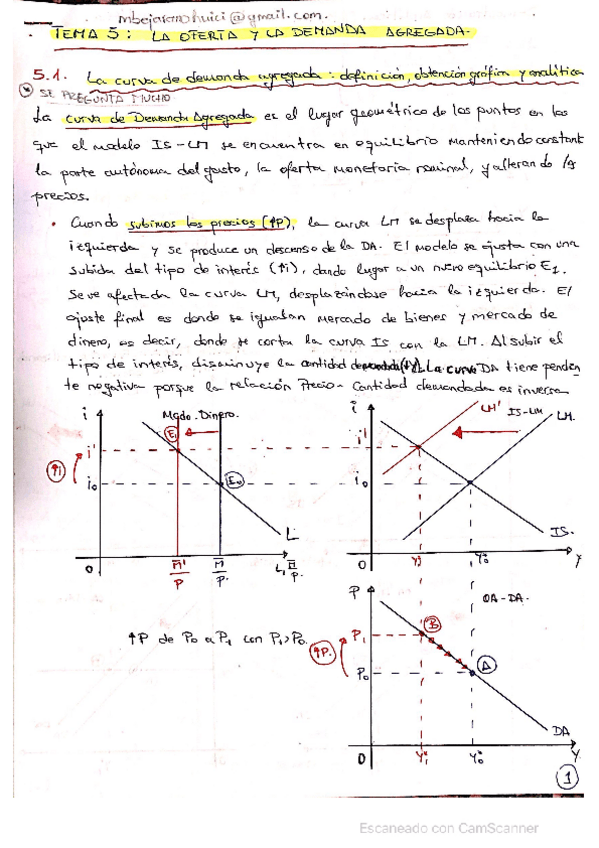 mbejaranohuici@gmail.com.
TEMA 5: LA OFERTA Y LA DEMANDA AGREGADA.
5.1. La curva de demanda agregada: definición, obtención gráfica y analítica
* SE PREGUNTA MUCHO
La curva de Demanda Agregada es el lugar geométrico de los puntos en los
que el modelo IS-LM se encuentra en equilibrio manteniendo constant
la parte autónoma del gasto, la oferta monetaria nominal, y alterando los
precios.
• Cuando subimos los precios (↑P), la curva LM se desplaza hacia la
izquierda y se produce un descenso de la DA. El modelo se ajusta con una
subida del tipo de interés (↑i), dando lugar a un nuevo equilibrio E1.
Se ve afectada la curva LM, desplazándose hacia la izquierda. El
ajuste final es donde se igualan mercado de bienes y mercado de
dinero, es decir, donde se corta la curva IS con la LM. Al subir el
tipo de interés, disminuye la cantidad demandada(↓Y). La curva DA tiene pendien
te negativa porque la relación Precio-Cantidad demandada es inversa
i Mcdo. Dinero.
E1
i'
↑i
i0 E0
L
0 M'/P M/P. L, M/P.
i LM' IS-LM LM.
i'
i0
IS.
0 Y0* Y
↑P de P0 a P1 con P1>P0.
P OA-DA.
P1 B
↑P.
P0 A
DA
0 Y1* Y0* Y
1
Escaneado con CamScanner